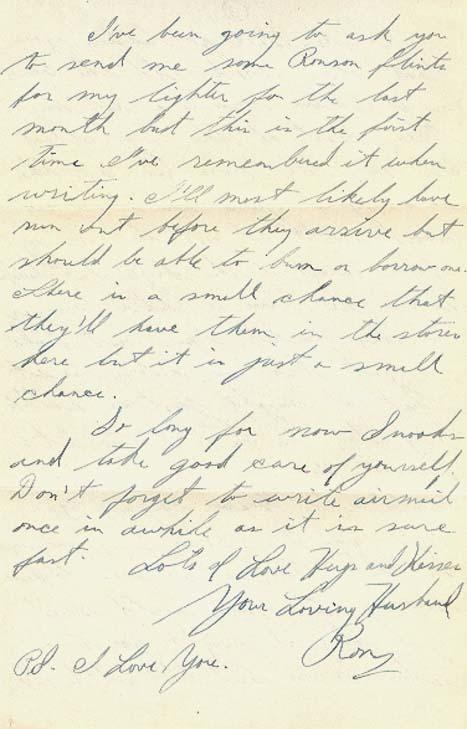 I've been going to ask you
to send me some Ronson flints
for my lighter for the last
month but this is the first
time I've remembered it when
writing. I'll most likely have
run out before they arrive but
should be able to bum or borrow one.
There is a small chance that
they'll have them in the stores
here but it is just a small
chance.
So long for now Snooks
and take good care of yourself.
Don't forget to write airmail
once in awhile as it is sure
fast. Lots of Love Hugs and Kisses
Your Loving Husband
Ron
P.S. I Love You.